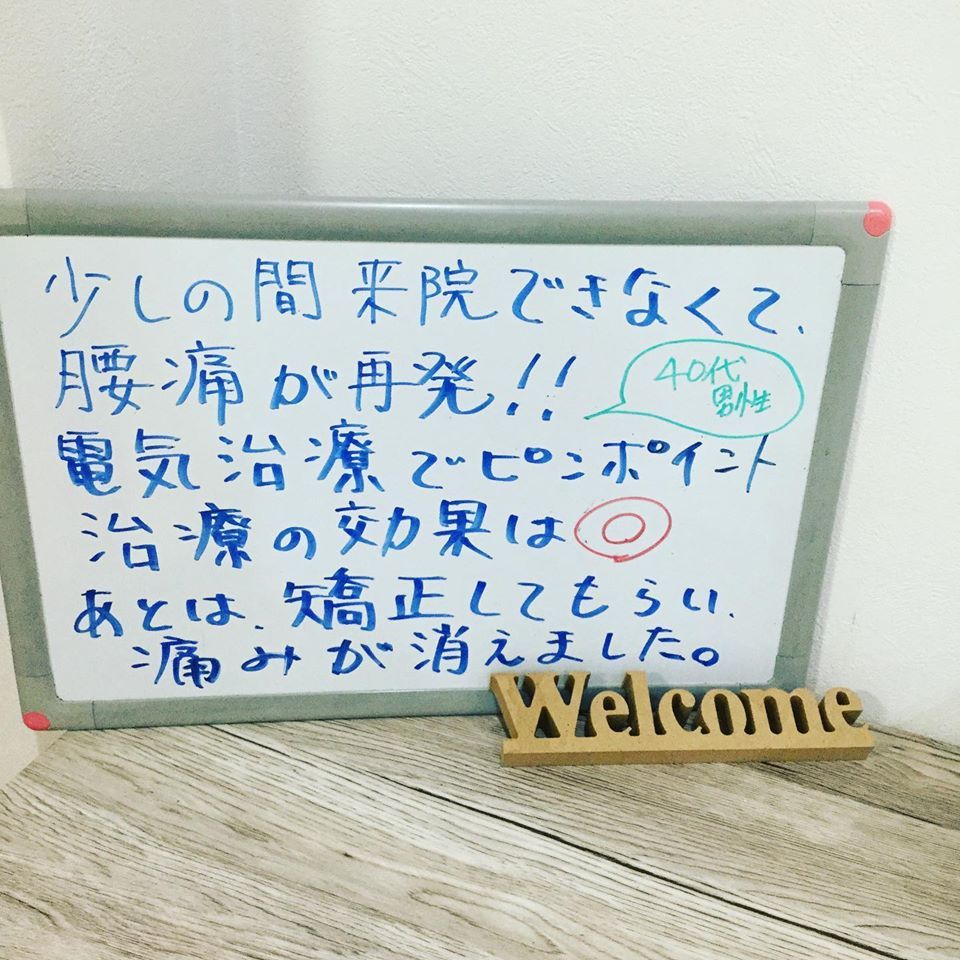 少しの間来院できなくて、
腰痛が再発!!
40代
男性
電気治療でピンポイント
治療の効果は◎
あとは、矯正してもらい、
痛みが消えました。
Welcome